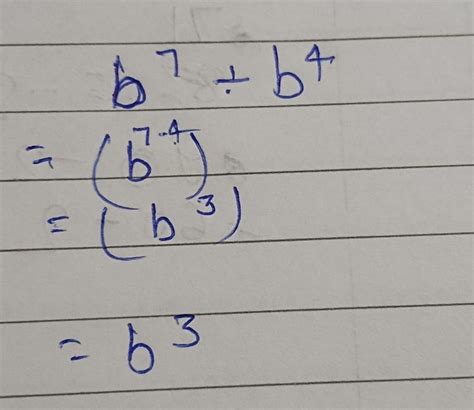 b⁷ ÷ b⁴
= (b⁷⁻⁴)
= (b³)
= b³